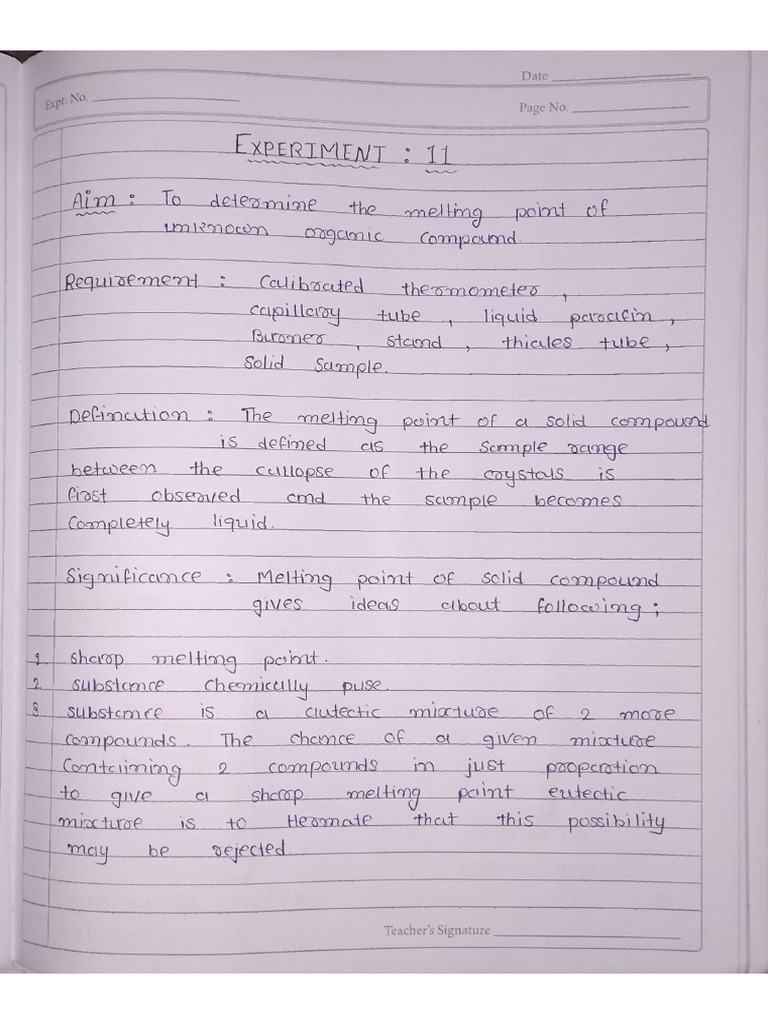 Date
Expt. No.
Page No.
EXPERIMENT : 11
Aim : To determine the melting point of
unknown organic compound.
Requirement : Calibrated thermometer ,
capillary tube , liquid paraffin ,
Burner , stand , thieles tube ,
Solid Sample.
Defination : The melting point of a solid compound
is defined as the sample range
between the collapse of the crystals is
first observed and the sample becomes
completely liquid.
Significance : Melting point of solid compound
gives ideas about following ;
1. sharp melting point.
2 substance chemically pure.
3 substance is a autectic mixture of 2 more
compounds. The chance of a given mixture
Containing 2 compounds in just proparation
to give a sharp melting point eutectic
mixture is to that this possibility
may be rejected
Teacher's Signature